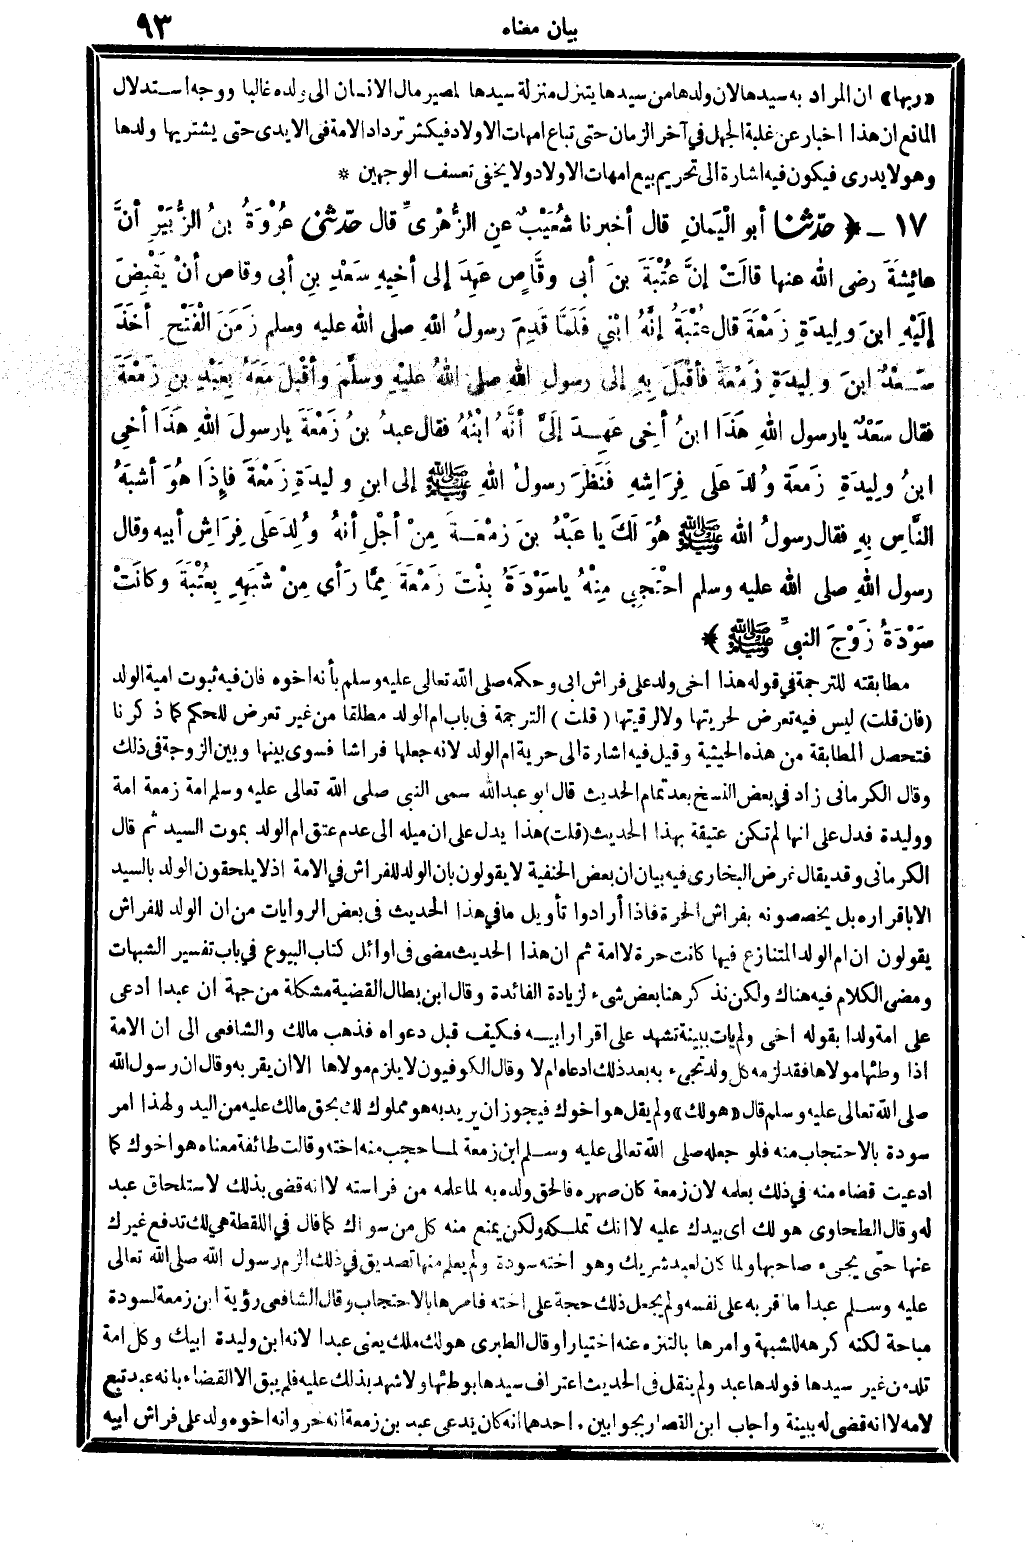 بيان معناه ٩٣
«ربها» ان المراد به سيدها لان ولدها من سيدها يتنزل منزلة سيدها لمصير مال الانسان الى ولده غالبا ووجه استدلال
المانع ان هذا اخبار عن غلبة الجهل في آخر الزمان حتى تباع امهات الاولاد فيكثر ترداد الامة فى الايدى حتى يشتريها ولدها
وهو لا يدرى فيكون فيه اشارة الى تحريم بيع امهات الاولاد ولا يخفى تعسف الوجهين *
١٧ ــ ﴿ حدّثنا أبو الْيَمانِ قال أخبرنا شُعَيْبٌ عنِ الزُّهْرىِّ قال حدّثنى عُرْوَةُ بنُ الزُّبَيْرِ أنَّ
عائِشَةَ رضى الله عنها قالَتْ إنَّ عُتْبَةَ بنَ أبى وقَّاصٍ عَهِدَ إلى أخيهِ سَعْدِ بنِ أبى وقاص أنْ يَقْبِضَ
إلَيْهِ ابنَ ولِيدَةِ زَمْعَةَ قال عُتْبَةُ إنَّهُ ابْنِي فَلَمَّا قَدِمَ رسولُ اللهِ صلى الله عليه وسلم زَمَنَ الْفَتْحِ أخَذَ
سَعْدٌ ابنَ ولِيدَةِ زَمْعَةَ فأقْبَلَ بِهِ إلى رسولِ اللهِ صلى اللهُ عليْهِ وسلَّمَ وأقْبَلَ مَعَهُ بِعَبْدِ بنِ زَمْعَةَ
فقال سَعْدٌ يارسول اللهِ هَذَا ابنُ أخِى عَهِدَ إلَىَّ أنَّهُ ابْنُهُ فقال عبدُ بنُ زَمْعَةَ يارسولَ اللهِ هَذَا أخِي
ابنُ ولِيدَةِ زَمعَةَ وُلِدَ عَلَى فِرَاشِهِ فَنَظَرَ رسولُ اللهِ ﷺ إلى ابنِ ولِيدَةِ زَمْعَةَ فإِذَا هُوَ أشْبَهُ
النَّاسِ بِهِ فقال رسولُ الله ﷺ هُوَ لَكَ يا عَبْدُ بنَ زَمْعَةَ مِنْ أجْلِ أنهُ وُلِدَ عَلَى فِرَاشِ أبيه وقال
رسول اللهِ صلى الله عليه وسلم احْتَجِبِى مِنْهُ ياسَوْدَةُ بِنْتَ زَمْعَةَ مِمَّا رَأى مِنْ شَبَهِهِ بِعُتْبَةَ وكانَتْ
سَوْدَةُ زَوْجَ النبىِّ ﷺ ﴾
مطابقته للترجمة في قوله هذا اخى ولد على فراش ابى وحكمه صلى الله تعالى عليه وسلم بأنه اخوه فان فيه ثبوت امية الولد
(فان قلت) ليس فيه تعرض لحريتها ولا لرقيتها (قلت) الترجمة فى باب ام الولد مطلقا من غير تعرض للحكم كما ذكرنا
فتحصل المطابقة من هذه الحيثية وقيل فيه اشارة الى حرية ام الولد لانه جعلها فراشا فسوى بينها وبين الزوجة فى ذلك
وقال الكرمانى زاد في بعض النسخ بعد تمام الحديث قال ابو عبد الله سمى النبى صلى الله تعالى عليه وسلم امة زمعة امة
ووليدة فدل على انها لم تكن عتيقة بهذا الحديث (قلت) هذا يدل على ان ميله الى عدم عتق ام الولد بموت السيد ثم قال
الكرمانى وقد يقال غرض البخارى فيه بيان ان بعض الحنفية لا يقولون بان الولد للفراش في الامة اذ لا يلحقون الولد بالسيد
الا باقراره بل يخصصونه بفراش الحرة فاذا أرادوا تأويل ما في هذا الحديث فى بعض الروايات من ان الولد للفراش
يقولون ان ام الولد المتنازع فيها كانت حرة لا امة ثم ان هذا الحديث مضى فى اوائل كتاب البيوع في باب تفسير الشبهات
ومضى الكلام فيه هناك ولكن نذكر هنا بعض شىء لزيادة الفائدة وقال ابن بطال القضية مشكلة من جهة ان عبدا ادعى
على امة ولدا بقوله اخى ولم يات ببينة تشهد على اقرار ابيه فكيف قبل دعواه فذهب مالك والشافعى الى ان الامة
اذا وطئها مولاها فقد لزمه كل ولد تجىء به بعد ذلك ادعاه ام لا وقال الكوفيون لا يلزم مولاها الا ان يقر به وقال ان رسول الله
صلى الله تعالى عليه وسلم قال «هو لك» ولم يقل هو اخوك فيجوز ان يريد به هو مملوك لك بحق مالك عليه من اليد ولهذا امر
سودة بالاحتجاب منه فلو جعله صلى الله تعالى عليه وسلم ابن زمعة لما حجب منه اخته وقالت طائفة معناه هو اخوك كما
ادعيت قضاء منه في ذلك بعلمه لان زمعة كان صهره فالحق ولده به لما علمه من فراسته لا انه قضى بذلك لاستلحاق عبد
له وقال الطحاوى هو لك اى بيدك عليه لا انك تملكه ولكن يمنع منه كل من سواك كما قال في اللقطة هي لك تدفع غيرك
عنها حتى يجىء صاحبها ولما كان لعبد شريك وهو اخته سودة ولم يعلم منها تصديق في ذلك الزم رسول الله صلى الله تعالى
عليه وسلم عبدا ما اقر به على نفسه ولم يجعل ذلك حجة على اخته فامرها بالاحتجاب وقال الشافعى رؤية ابن زمعة لسودة
مباحة لكنه كرهه للشبهة وامرها بالتنزه عنه اختيارا وقال الطبرى هو لك ملك يعنى عبدا لانه ابن وليدة ابيك وكل امة
تلد من غير سيدها فولدها عبد ولم ينقل فى الحديث اعتراف سيدها بوطئها ولا شهد بذلك عليه فلم يبق الا القضاء بانه عبد تبع
لامه لا انه قضى له ببينة واجاب ابن القصار بجوابين . احدهما انه كان يدعى عبد بن زمعة انه حر وانه اخوه ولد على فراش ابيه